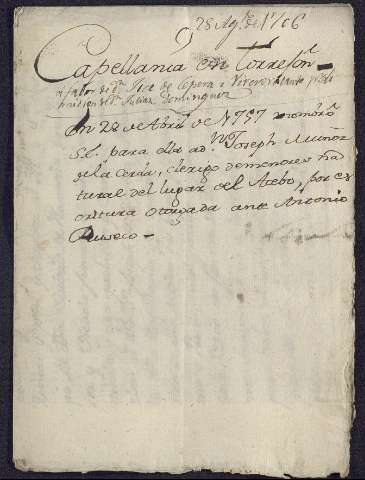 25 Ag.to de 1706
Capellania en Torrejon
a fabor de Dn de Cepera i Vivero
de Dn Julian Dominguez
En 22 de Abril de 1757 nombró
S.E. para ella a Dn Joseph Muñoz
de la Cerda, clerigo de menores na
tural del lugar del Acebo, por es
critura otorgada ante Antonio